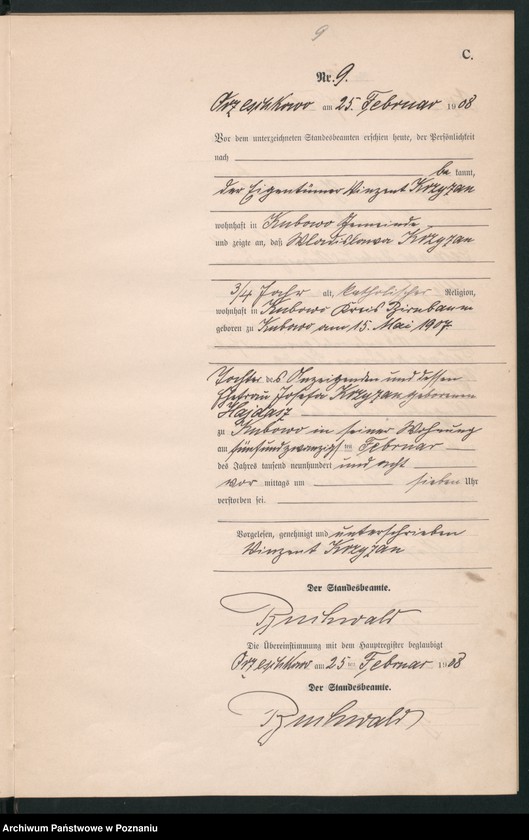 9
C.
Nr. 9.
Orzeschkowo am 25. Februar 1908
Vor dem unterzeichneten Standesbeamten erschien heute, der Persönlichkeit
nach
be kannt,
der Eigentümer Vinzent Krzyzan
wohnhaft in Kubowo Gemeinde
und zeigte an, daß Wladislawa Krzyzan
3/4 Jahr alt, katholischer Religion,
wohnhaft in Kubowo Kreis Birnbaum
geboren zu Kubowo, am 15. Mai 1907
Tochter des Anzeigenden und dessen
Ehefrau Josefa Krzyzan geborenen
Hajdasz
zu Kubowo in seiner Wohnung
am fünfundzwanzigsten Februar
des Jahres tausend neunhundert und acht
vor mittags um sieben Uhr
verstorben sei.
Vorgelesen, genehmigt und unterschrieben
Vinzent Krzyzan
Der Standesbeamte.
Buchwald
Die Übereinstimmung mit dem Hauptregister beglaubigt
Orzeschkowo am 25 ten Februar 1908
Der Standesbeamte.
Buchwald
Archiwum Państwowe w Poznaniu